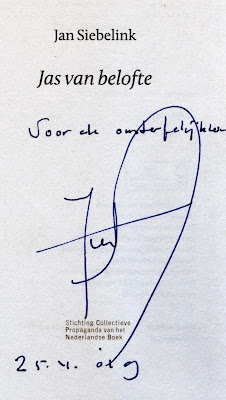 Jan Siebelink
Jas van belofte
Voor de onsterfelijken
Stichting Collectieve
Propaganda van het
Nederlandse Boek
25.4.